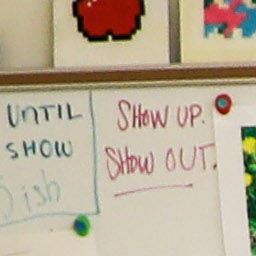 UNTIL
SHOW
ish
SHOW UP.
SHOW OUT.